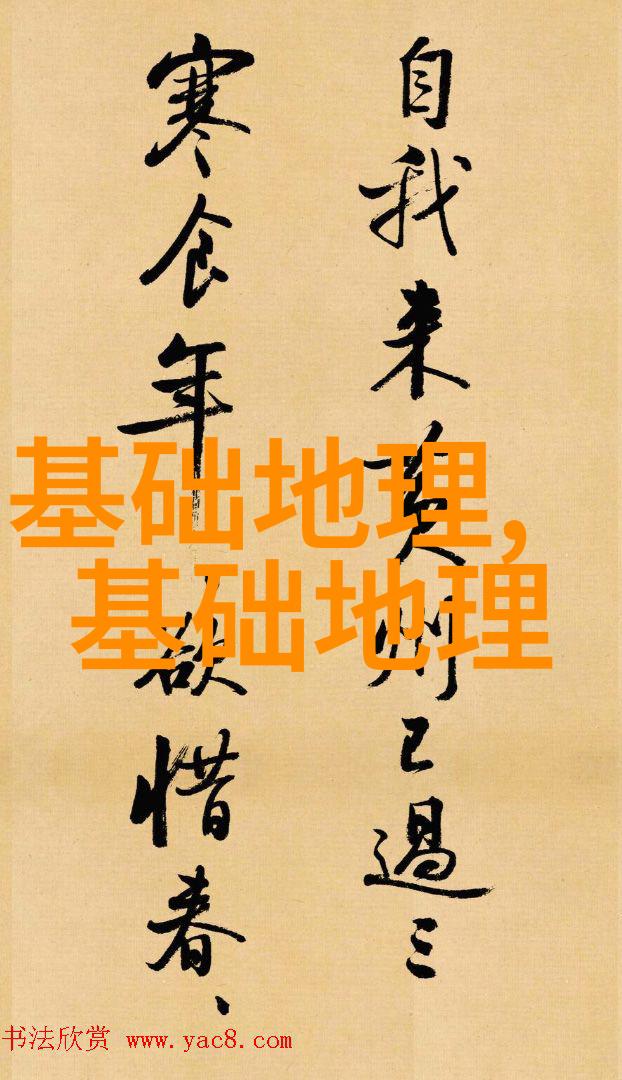 自我来黄州已過三
寒食年年欲惜春、
基础地理,
基础地理
书法欣赏 www.yac8.com